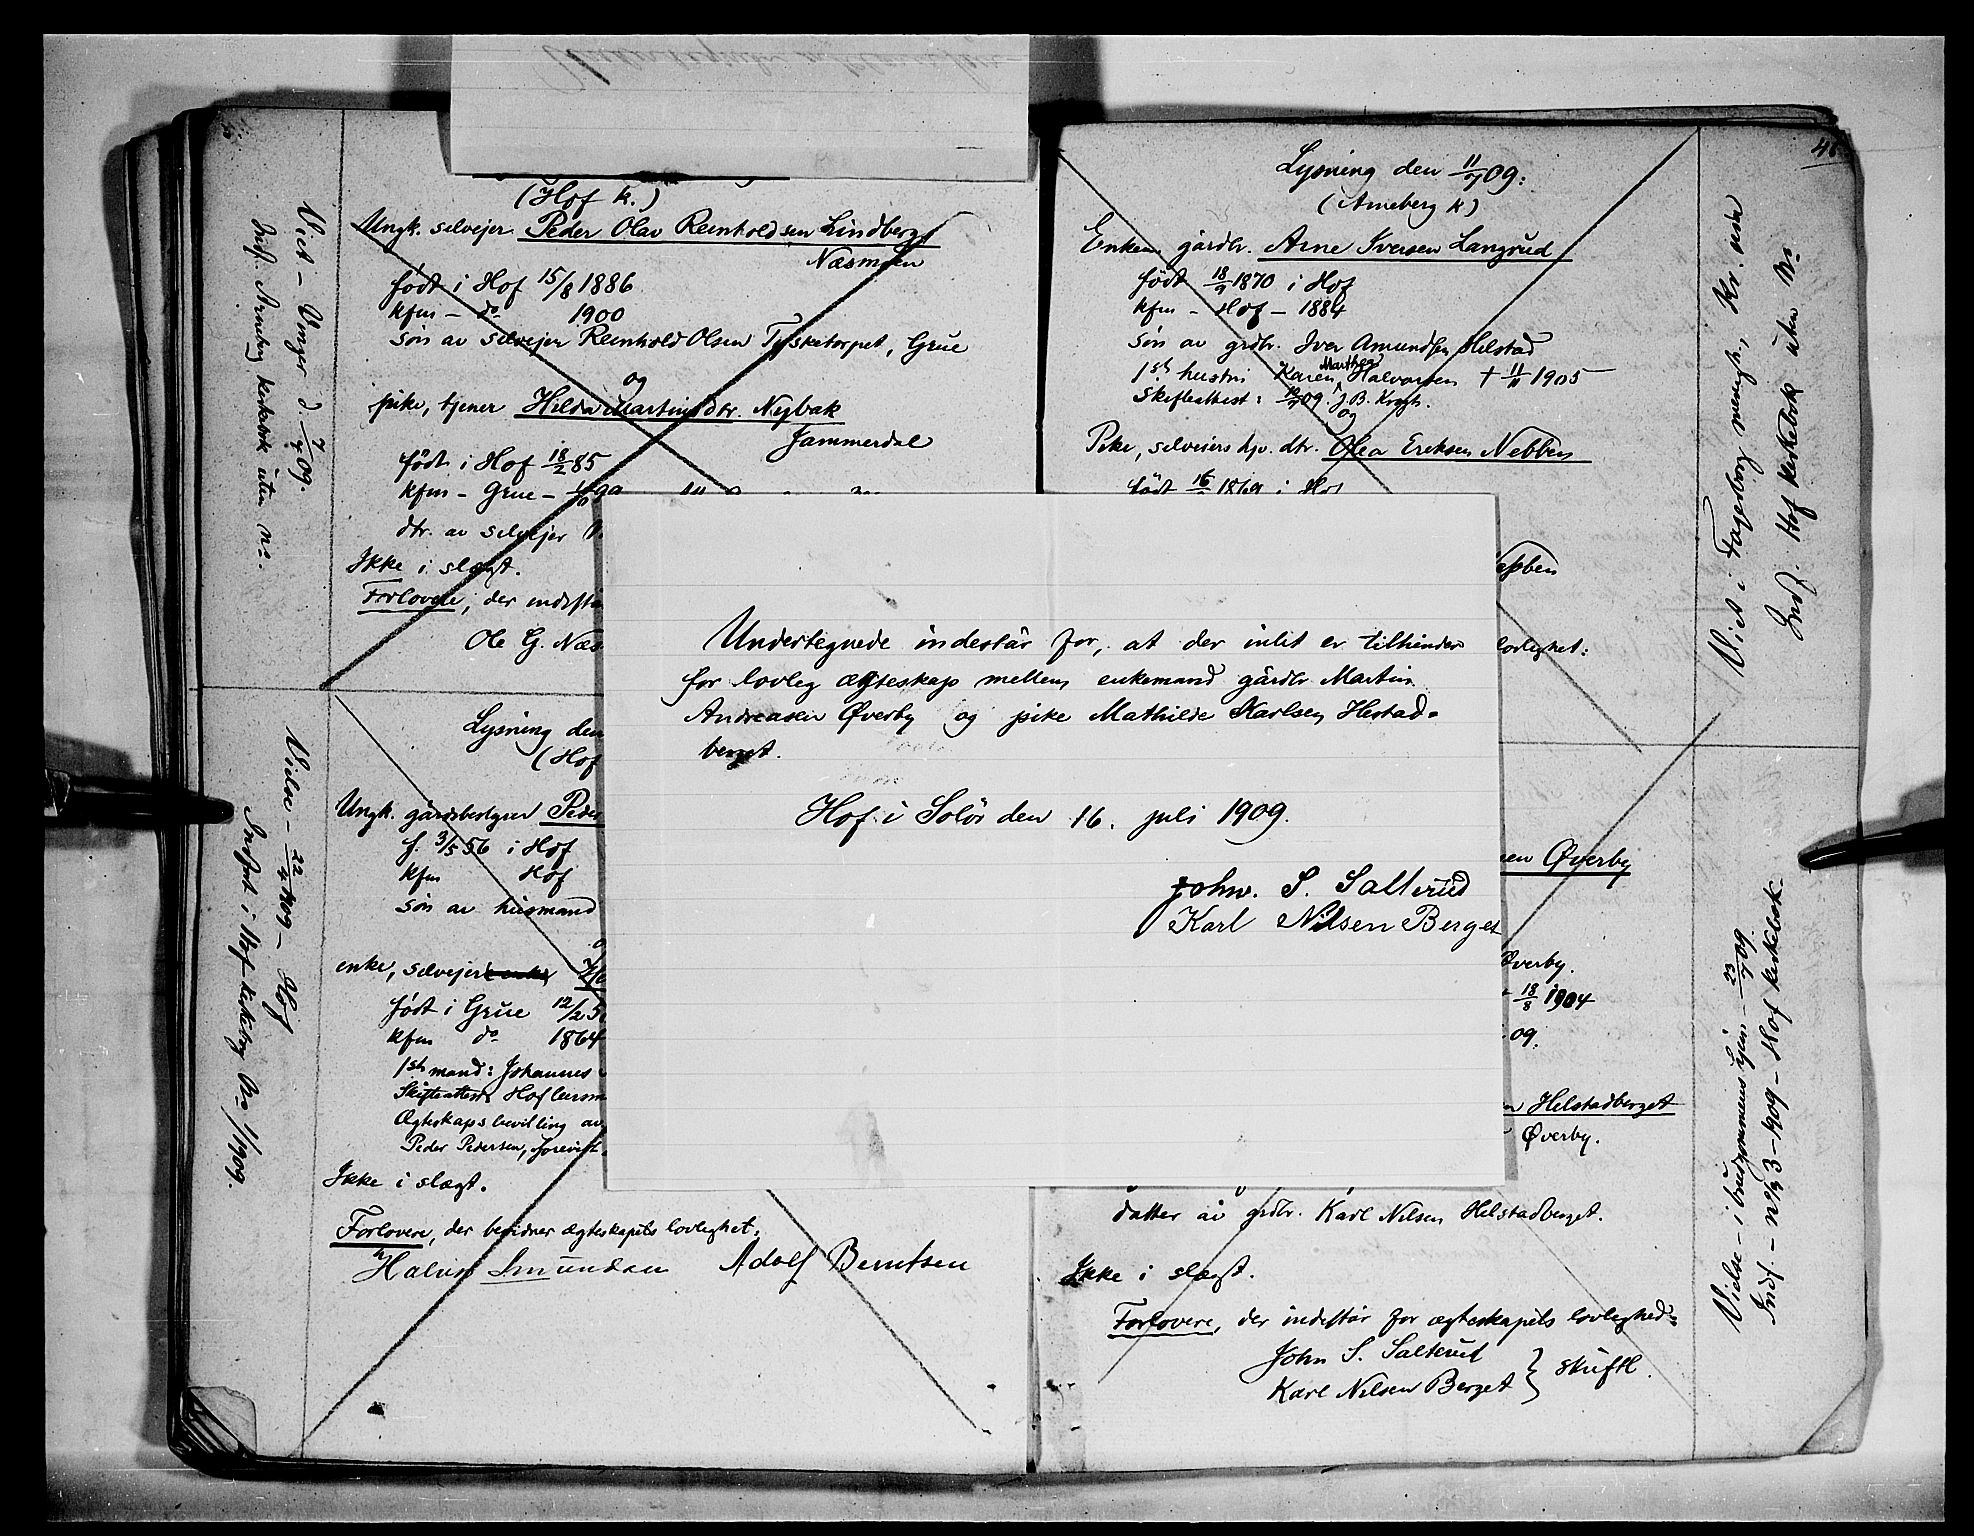 (Hof k.)
Ungk. selvejer Peder Olav Reinholdsen Lindberg
Næsmoen
født i Hof 15/8 1886
kfm – do 1900
søn av selvejer Reinhold Olsen Tysketorpet, Grue
og
pike, tjener Hilda Martinsdtr. Nybak
Jammerdal
født i Hof 18/2 85
kfm – Grue –
dtr. av selvejer
Ikke i slægt.
Forlovere, der indestå
Ole G. Næs
Viet – Vinger d. 7/7 09.
Indf. Arneberg kirkebok uten No.
Lysning den
(Hof
Ungk. gårdsbestyrer Peder
f. 3/5 56 i Hof
kfm Hof
søn av husmand
enke, selvejer
født i Grue 12/2 5
kfm do 1864
1ste mand: Johannes
Skifteattest Hof lensm
Ægteskapsbevilling av
Peder Pedersen, forevist.
Ikke i slægt.
Forlovere, der bevidner ægteskapets lovlighet.
Halvor Amundsen Adolf Berntsen
Vielse – 22/7 1909 – Hof
Indført i Hof kirkebog No 1/1909.
Undertegnede indestår for, at der intet er tilhinder
for lovleg ægteskap mellem enkemand gårdbr Martin
Andreasen Øverby og pike Mathilde Karlsen Hestad-
berget.
Hof i Solør den 16. juli 1909.
John. S. Salterud
Karl Nilsen Berget
46
Lysning den 11/7 09:
(Arneberg k)
Enkem. gårdbr. Arne Iversen Langrud
født 18/9 1870 i Hof
kfm – Hof – 1884
søn av grdbr. Iver Amundsen Helstad
1ste hustru Karen Marthea Halvorsen † 11/11 1905
Skifteattest: 09. J. B. Krogh.
og
Pike, selveiers hjv. dtr. Olea Eriksen Nebben
født 16 1869 i Hof
Nebben
lovlighet:
Viet i Fagerborg menigh., Kr.
Indf. Hof kirkebok uten No
sen Øverby
Øverby.
18/8 1904
09.
n Helstadberget
Øverby.
datter av grdbr. Karl Nilsen Helstadberget.
Ikke i slægt.
Forlovere, der indestår for ægteskapets lovlighed:
John S. Salterud
Karl Nilsen Berget } skriftl.
Vielse – i brudgommens hjem – 23/7 09
Indf. – No 3 – 1909 – Hof kirkebok.